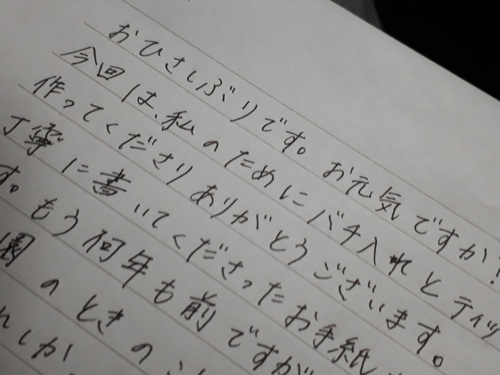 おひさしぶりです。お元気ですか?
今回は、私のためにバチ入れとティッ
作ってくださりありがとうございます。
丁寧に書いてくださったお手紙
す。もう何年も前ですが
園のときの
しか